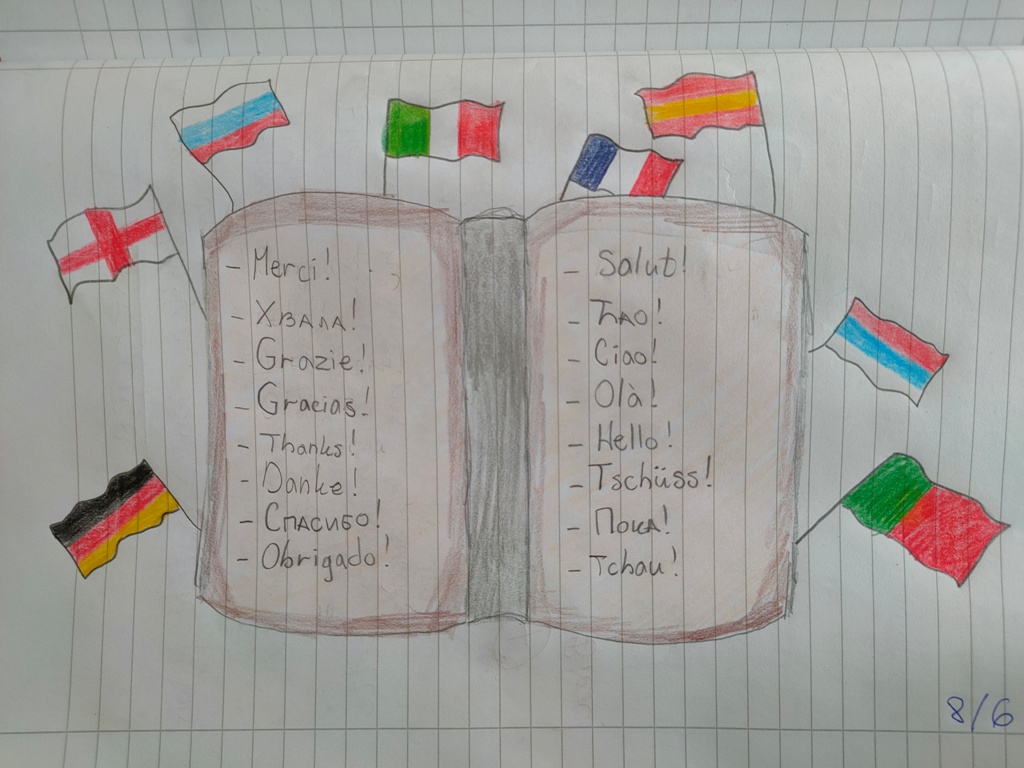 - Merci!
- Хвала!
- Grazie!
- Gracias!
- Thanks!
- Danke!
- Спасибо!
- Obrigado!
- Salut!
- Ћао!
- Ciao!
- Olà!
- Hello!
- Tschüss!
- Пока!
- Tchau!
8/6